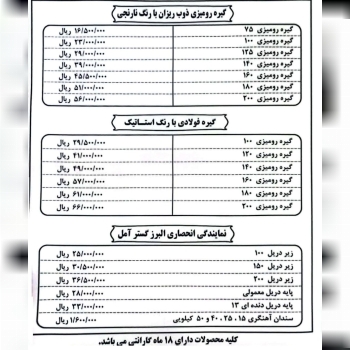 گیره رومیزی ذوب ریزان با رنگ نارنجی
گیره رومیزی ۷۵ ۱۶/۵۰۰/۰۰۰ ریال
گیره رومیزی ۱۰۰ ۲۳/۰۰۰/۰۰۰ ریال
گیره رومیزی ۱۲۵ ۲۹/۰۰۰/۰۰۰ ریال
گیره رومیزی ۱۴۰ ۳۹/۰۰۰/۰۰۰ ریال
گیره رومیزی ۱۶۰ ۴۵/۵۰۰/۰۰۰ ریال
گیره رومیزی ۱۸۰ ۵۱/۰۰۰/۰۰۰ ریال
گیره رومیزی ۲۰۰ ۵۶/۰۰۰/۰۰۰ ریال
گیره فولادی با رنگ استاتیک
گیره رومیزی ۱۰۰ ۲۹/۵۰۰/۰۰۰ ریال
گیره رومیزی ۱۲۰ ۴۱/۰۰۰/۰۰۰ ریال
گیره رومیزی ۱۴۰ ۴۹/۰۰۰/۰۰۰ ریال
گیره رومیزی ۱۶۰ ۵۷/۰۰۰/۰۰۰ ریال
گیره رومیزی ۱۸۰ ۶۱/۰۰۰/۰۰۰ ریال
گیره رومیزی ۲۰۰ ۶۶/۰۰۰/۰۰۰ ریال
نمایندگی انحصاری البرز گستر آمل
زیر دریل ۱۰۰ ۲۵/۰۰۰/۰۰۰ ریال
زیر دریل ۱۵۰ ۳۰/۵۰۰/۰۰۰ ریال
زیر دریل ۲۰۰ ۳۶/۵۰۰/۰۰۰ ریال
پایه دریل معمولی ۲۸/۰۰۰/۰۰۰ ریال
پایه دریل دنده ای ۱۳ ۳۳/۰۰۰/۰۰۰ ریال
سندان آهنگری ۱۵ ، ۲۵ ، ۴۰ و ۵۰ کیلویی ۱/۶۰۰/۰۰۰ ریال
کلیه محصولات دارای ۱۸ ماه گارانتی می باشد.